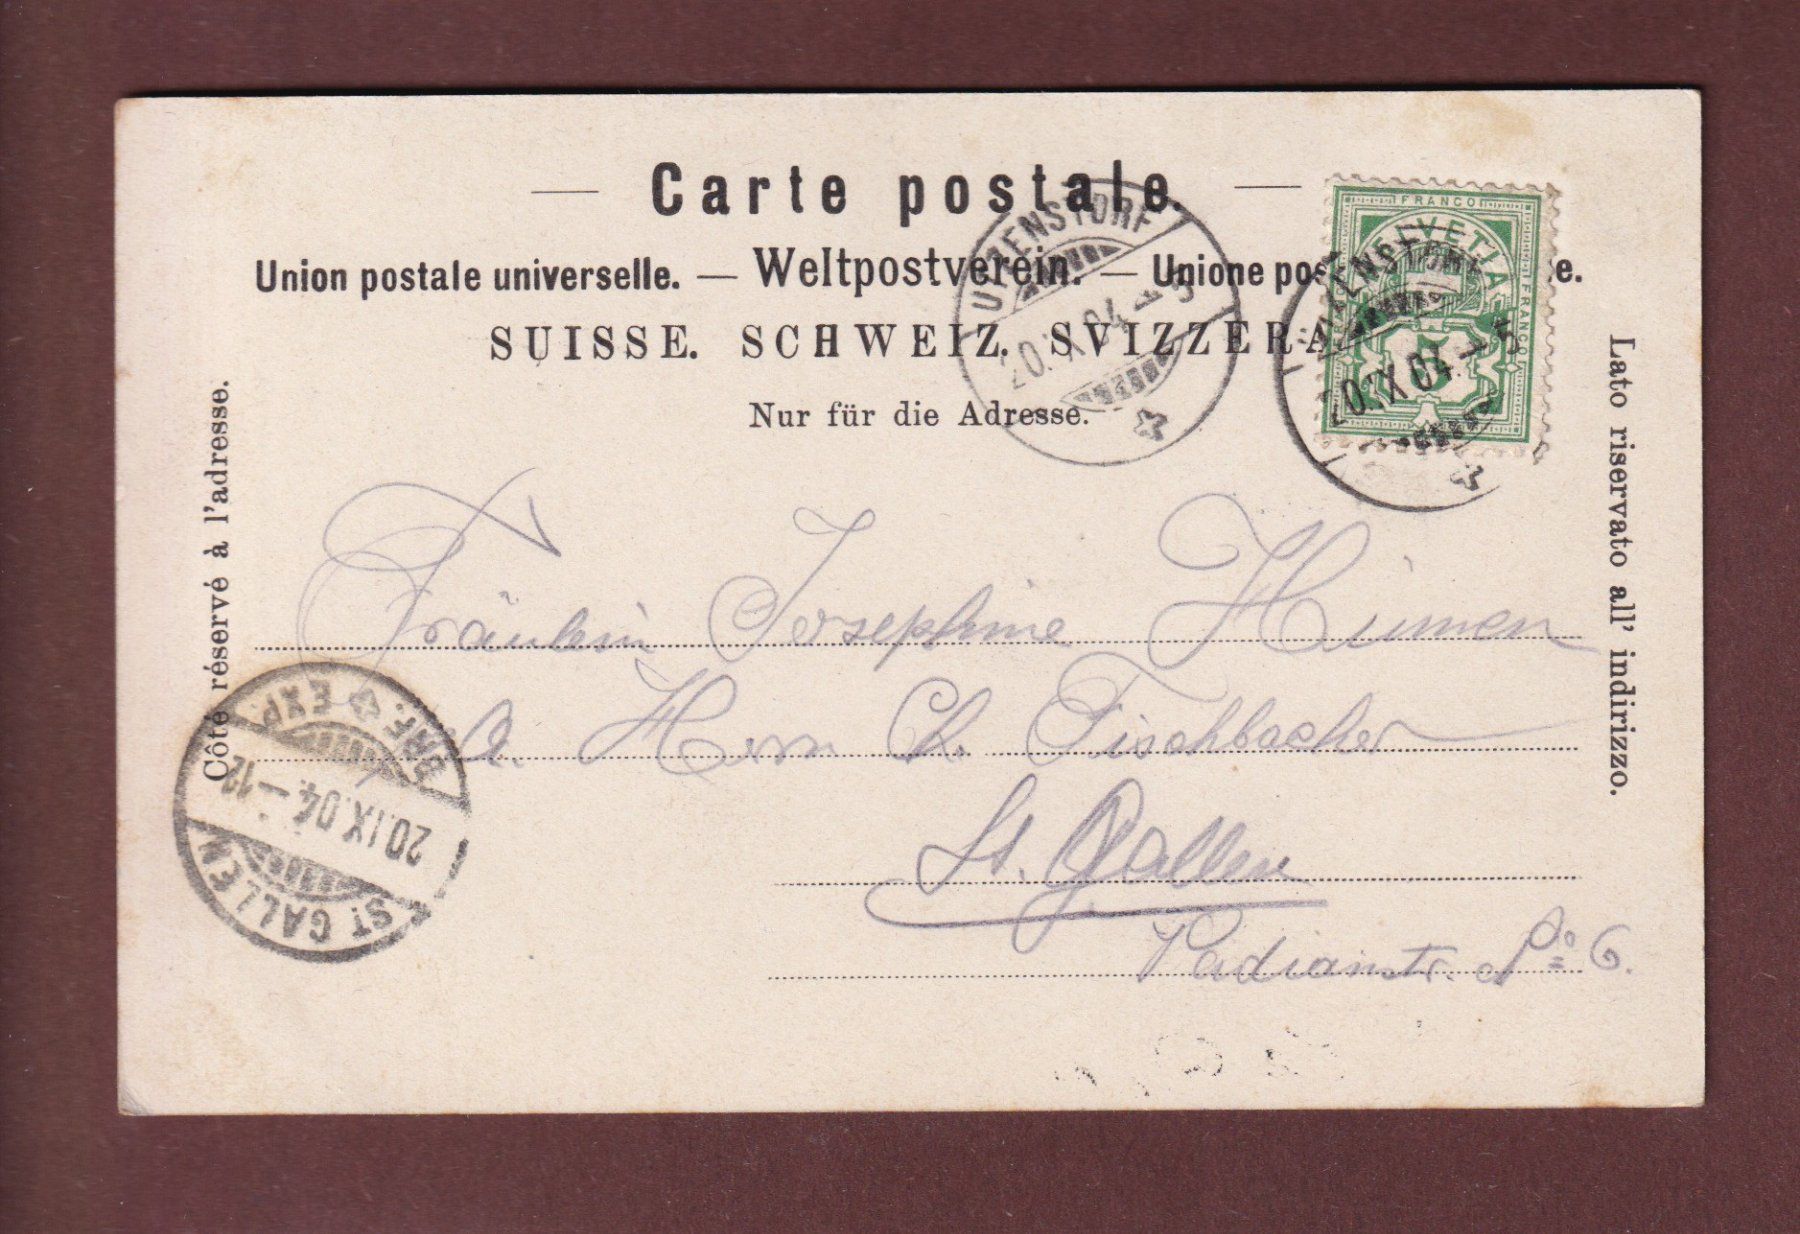 Carte postale.
Union postale universelle. — Weltpostverein. — Unione pos e.
SUISSE. SCHWEIZ. SVIZZERA
Nur für die Adresse.
Côté réservé à l'adresse.
Lato riservato all' indirizzo.
FRANCO
HELVETIA
FRANCO
5
UTZENSTORF
20.IX.04.–5
UTZENSTORF
20.IX.04.–5
Fräulein Josephine
Herrn Ch. Fischbacher
St. Gallen
Vadianstr. No 6.
BRF. EXP.
20.IX.04.–12
ST. GALLEN